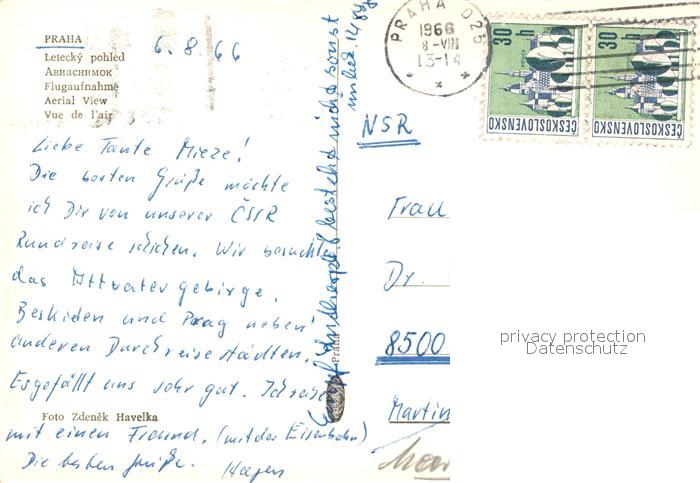 PRAHA
Letecký pohled
Авиаснимок
Flugaufnahme
Aerial View
Vue de l'air
6.8.66
PRAHA 025
1966
8-VIII
13-14
30 h
ČESKOSLOVENSKO
30 h
ČESKOSLOVENSKO
Liebe Tante Mieze!
Die besten Grüße möchte
ich Dir von unserer ČSSR
Rundreise schicken. Wir besuchten
das Altvatergebirge,
Beskiden und Prag neben
anderen Durchreisestädten.
Es gefällt uns sehr gut. Ich reise
mit einem Freund. (mit der Eisenbahn)
Die besten Grüße. Hagen
Foto Zdeněk Havelka
besteht nicht sonst
Praha
NSR
Frau
Dr.
8500
Martin
privacy protection
Datenschutz